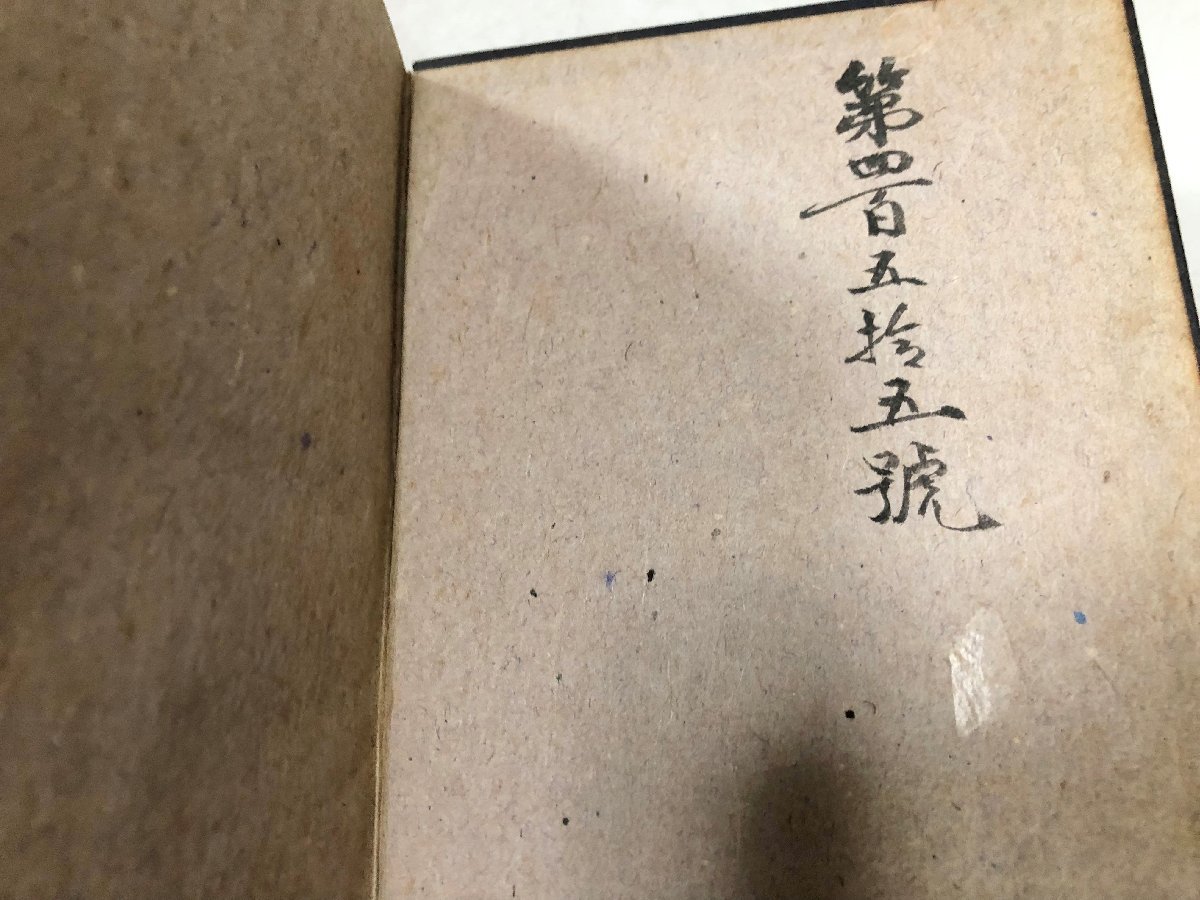 第四百五拾五號